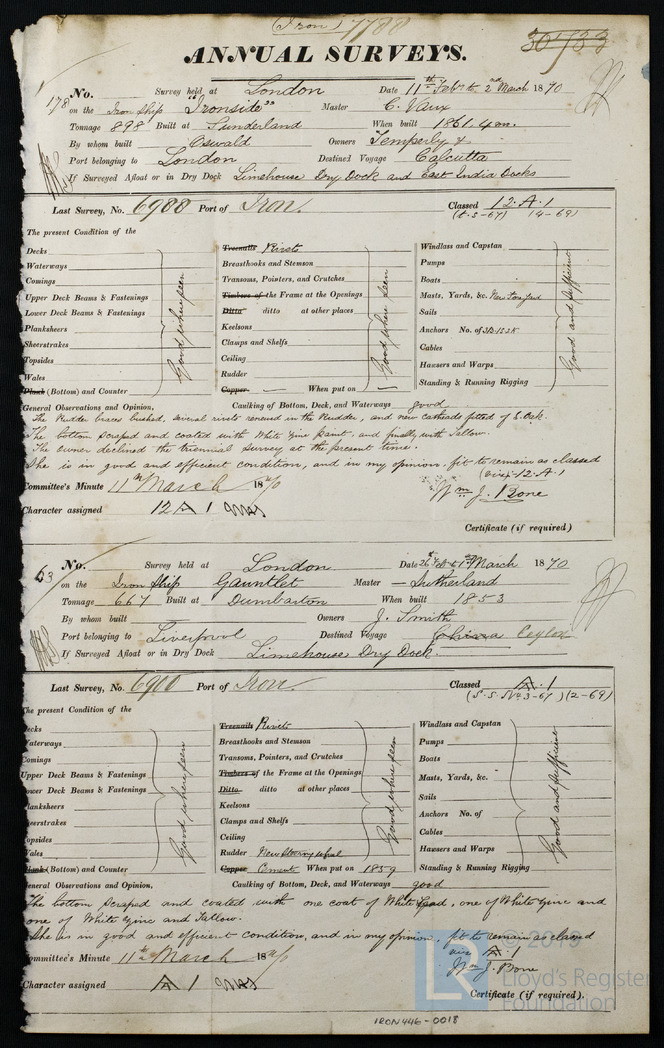 (Iron) 7788
30733
ANNUAL SURVEYS.
178 No. Survey held at London Date 11th Feby to 2nd March 1870
on the Iron Ship "Ironside" Master C. Vaux
Tonnage 898 Built at Sunderland When built 1861, 4 m.
By whom built Oswald Owners Temperly &
Port belonging to London Destined Voyage Calcutta
If Surveyed Afloat or in Dry Dock Limehouse Dry Dock and East India Docks
Last Survey, No. 6988 Port of Iron. Classed 12.A.1
(t.S-67) (4-69)
The present Condition of the
Decks
Waterways
Comings
Upper Deck Beams & Fastenings
Lower Deck Beams & Fastenings
Planksheers
Sheerstrakes
Topsides
Wales
Plank (Bottom) and Counter
Good where seen
Treenails Rivets
Breasthooks and Stemson
Transoms, Pointers, and Crutches
Timbers of the Frame at the Openings
Ditto ditto at other places
Keelsons
Clamps and Shelfs
Ceiling
Rudder
Copper — When put on
Good where seen
Windlass and Capstan
Pumps
Boats
Masts, Yards, &c. New Fore Yard
Sails
Anchors No. of 3B 1S 2K
Cables
Hawsers and Warps
Standing & Running Rigging
Good and sufficient
General Observations and Opinion, Caulking of Bottom, Deck, and Waterways good
The Rudder braces bushed, several rivets renewed in the Rudder, and new catheads fitted of E. Oak.
The bottom scraped and coated with White Zinc paint, and finally with Tallow.
The owner declined the triennial survey at the present time.
She is in good and efficient condition, and in my opinion, fit to remain as classed
(viz) 12.A.1
Committee's Minute 11th March 1870 Wm. J. Bone
Character assigned 12 A 1
Certificate (if required)
63 No. Survey held at London Date 26th Feb & 1st March 1870
on the Iron Ship Gauntlet Master — Sutherland
Tonnage 667 Built at Dumbarton When built 1853
By whom built Owners J. Smith
Port belonging to Liverpool Destined Voyage China Ceylon
If Surveyed Afloat or in Dry Dock Limehouse Dry Dock.
Last Survey, No. 6900 Port of Iron. Classed A.1
(S.S. No. 3-67) (2-69)
The present Condition of the
Decks
Waterways
Comings
Upper Deck Beams & Fastenings
Lower Deck Beams & Fastenings
Planksheers
Sheerstrakes
Topsides
Wales
Plank (Bottom) and Counter
Good where seen
Treenails Rivets
Breasthooks and Stemson
Transoms, Pointers, and Crutches
Timbers of the Frame at the Openings
Ditto ditto at other places
Keelsons
Clamps and Shelfs
Ceiling
Rudder New Steering wheel
Copper Cement When put on 1859
Good where seen
Windlass and Capstan
Pumps
Boats
Masts, Yards, &c.
Sails
Anchors No. of
Cables
Hawsers and Warps
Standing & Running Rigging
Good and sufficient
General Observations and Opinion, Caulking of Bottom, Deck, and Waterways good
The bottom scraped and coated with one coat of White Lead, one of White Zinc and
one of White Zinc and Tallow.
She is in good and efficient condition, and in my opinion, fit to remain as classed
viz A.1
Committee's Minute 11th March 1870 Wm. J. Bone
Character assigned A 1
Certificate (if required).
LR © 2019
Lloyd's Register
Foundation
IRON446-0018